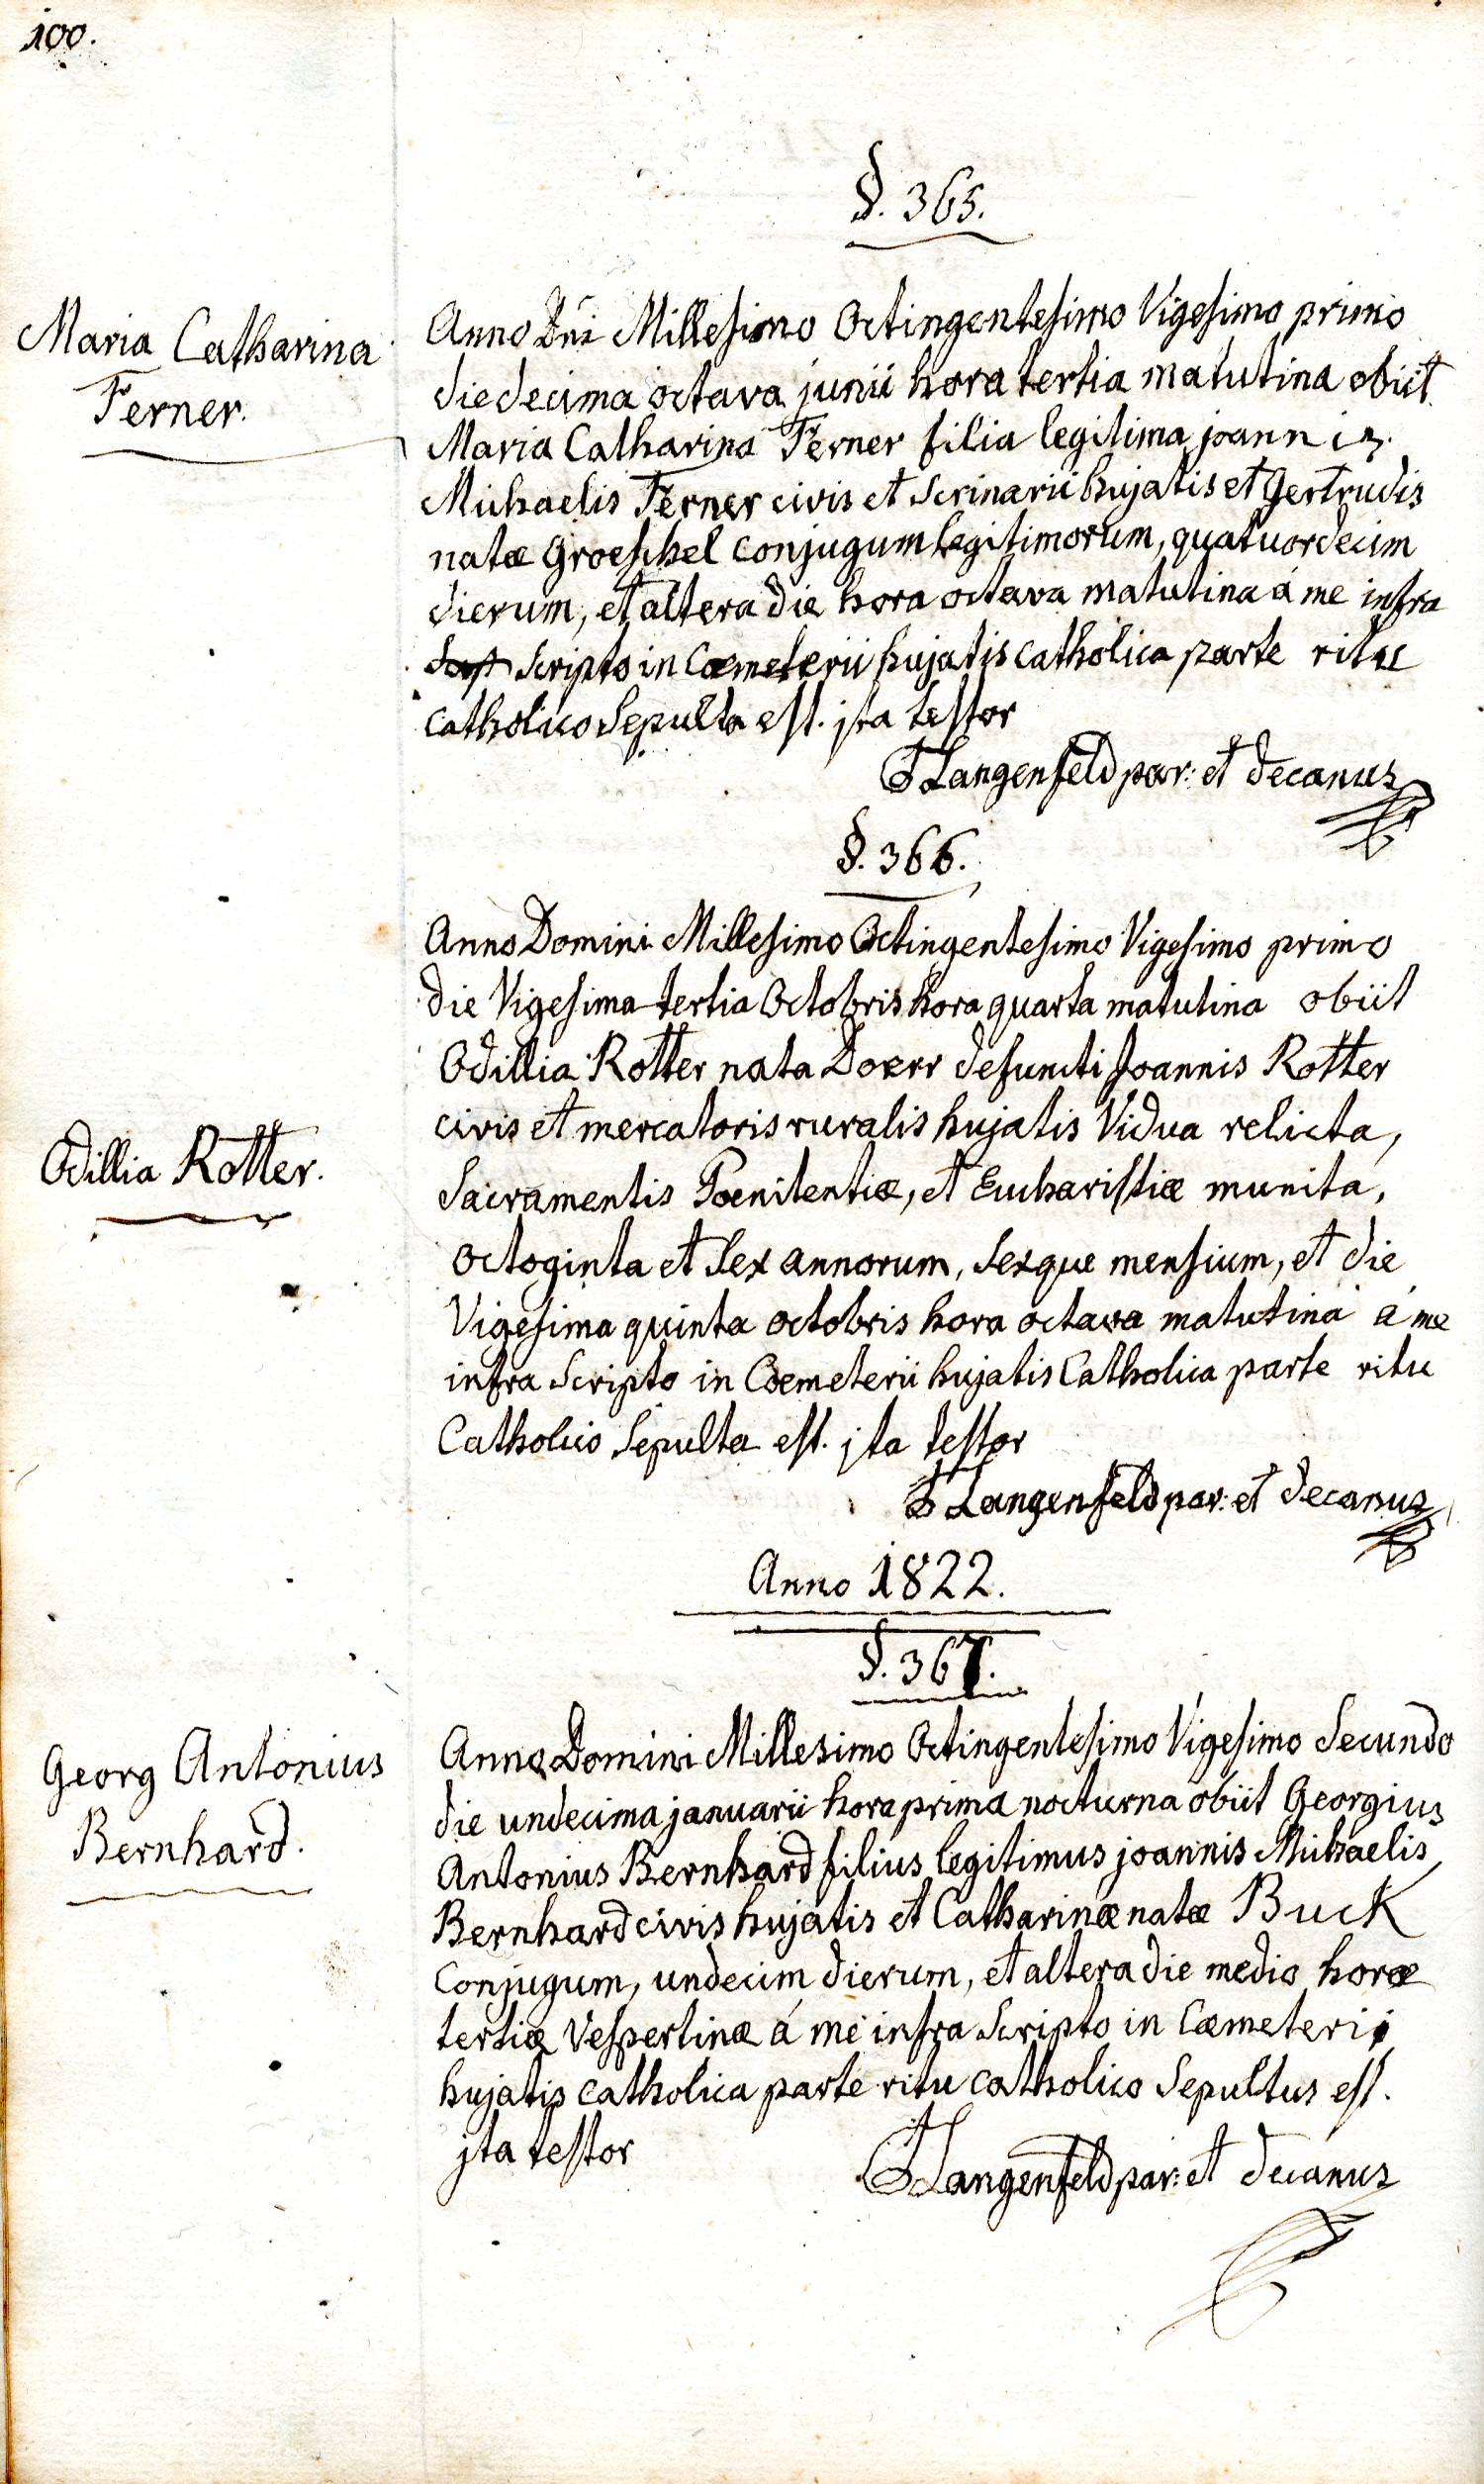 100.
§. 365.
Maria Catharina
Ferner.
Anno Dni Millesimo Octingentesimo Vigesimo primo
die decima octava junii hora tertia matutina obiit
Maria Catharina Ferner filia legitima joannis
Michaelis Ferner civis et Scrinarii hujatis et Gertrudis
natæ Groeschel conjugum legitimorum, quatuordecim
dierum, et altera die hora octava matutina á me infra
Scripto in Cœmeterii hujatis catholica parte ritu
catholico Sepulta est. jta testor
Langenfeld par: et Decanus
§. 366.
Anno Domini Millesimo Octingentesimo Vigesimo primo
die Vigesima tertia Octobris hora quarta matutina obiit
Odillia Rotter nata Doerr defuncti Joannis Rotter
civis et mercatoris ruralis hujatis Vidua relicta,
Odillia Rotter.
Sacramentis Poenitentiæ, et Eucharistiæ munita,
octoginta et Sex annorum, Sexque mensium, et die
Vigesima quinta octobris hora octava matutina á me
infra Scripto in Coemeterii hujatis Catholica parte ritu
Catholico Sepulta est. jta testor
Langenfeld par: et Decanus
Anno 1822.
§. 367.
Georg Antonius
Bernhard.
Anno Domini Millesimo Octingentesimo Vigesimo Secundo
die undecima januarii hora prima nocturna obiit Georgius
Antonius Bernhard filius legitimus joannis Michaelis
Bernhard civis hujatis et Catharinæ natæ Buck
Conjugum, undecim dierum, et altera die medio horæ
tertiæ Vespertinæ á me infra Scripto in Cœmeterii
hujatis catholica parte ritu catholico Sepultus est.
jta testor
Langenfeld par: et Decanus